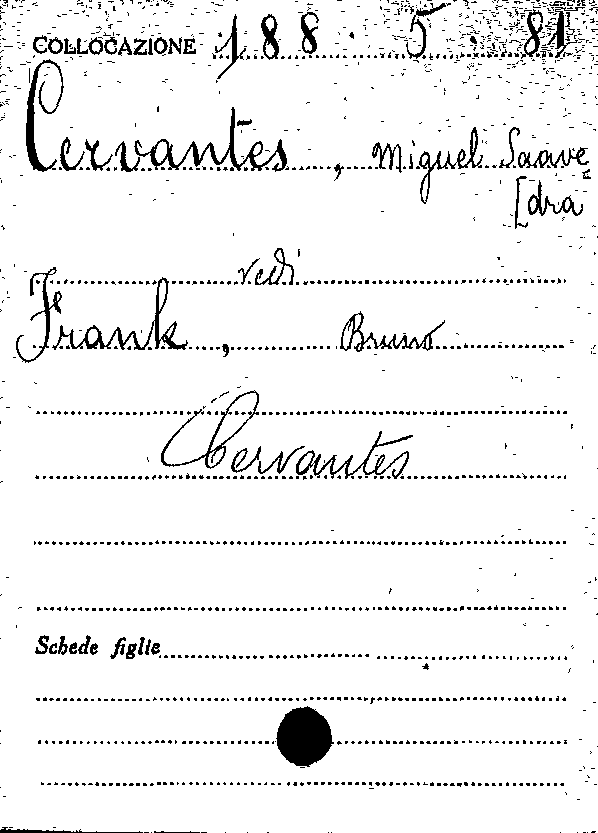 COLLOCAZIONE 188. 5. 81
Cervantes, Miguel Saave
[dra
vedi
Frank, Bruno
Cervantes
Schede figlie